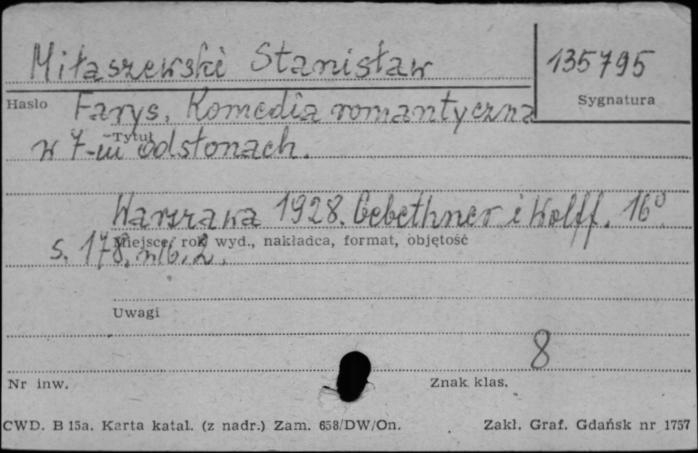 Miłaszewski Stanisław
135795
Hasło
Sygnatura
Farys. Komedia romantyczna
Tytuł
w 7-iu odsłonach.
Warszawa 1928. Gebethner i Wolff. 16°
Miejsce, rok wyd., nakładca, format, objętość
s. 178, nlb. 2.
Uwagi
8
Nr inw.
Znak klas.
CWD. B 15a. Karta katal. (z nadr.) Zam. 658/DW/On.
Zakł. Graf. Gdańsk nr 1757